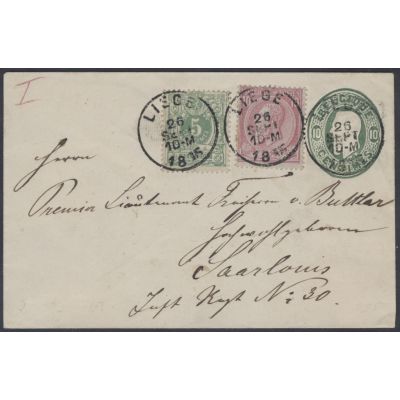 I
LIEGE
26
SEPT
10-M
1885
5
LIEGE
26
SEPT
10-M
1885
10
10
26
SEPT
10-M
Herrn
Premier Lieutenant Freiherrn v. Buttlar
Hochwohlgeboren
Saarlouis
Inft Regt No: 30.